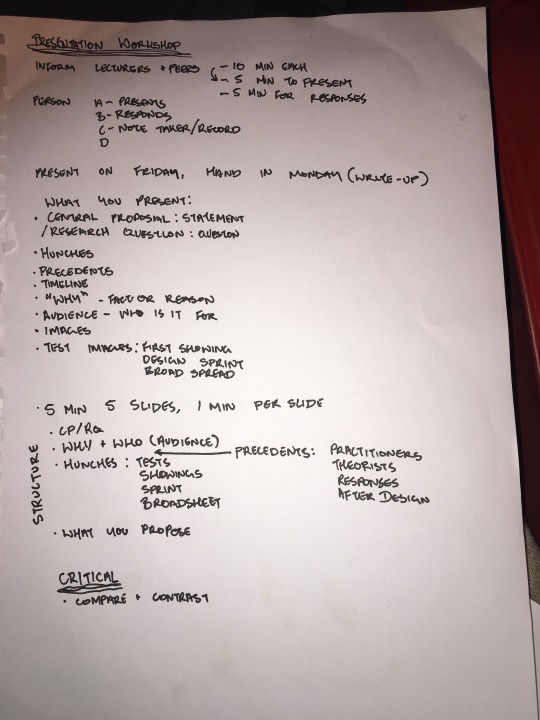 PRESENTATION WORKSHOP
INFORM LECTURERS + PEERS - 10 MIN EACH
- 5 MIN TO PRESENT
- 5 MIN FOR RESPONSES
PERSON A - PRESENTS
B - RESPONDS
C - NOTE TAKER/RECORD
D
PRESENT ON FRIDAY, HAND IN MONDAY (WRITE-UP)
WHAT YOU PRESENT:
• CENTRAL PROPOSAL: STATEMENT
/RESEARCH QUESTION: QUESTION
• HUNCHES
• PRECEDENTS
• TIMELINE
• "WHY" - FACT OR REASON
• AUDIENCE - WHO IS IT FOR
• IMAGES
• TEST IMAGES: FIRST SHOWING
DESIGN SPRINT
BROAD SPREAD
• 5 MIN 5 SLIDES, 1 MIN PER SLIDE
STRUCTURE
• CP/RQ
• WHY + WHO (AUDIENCE)
• HUNCHES: TESTS
SHOWINGS
SPRINT
BROADSHEET
PRECEDENTS: PRACTITIONERS
THEORISTS
RESPONSES
AFTER DESIGN
• WHAT YOU PROPOSE
CRITICAL
• COMPARE + CONTRAST